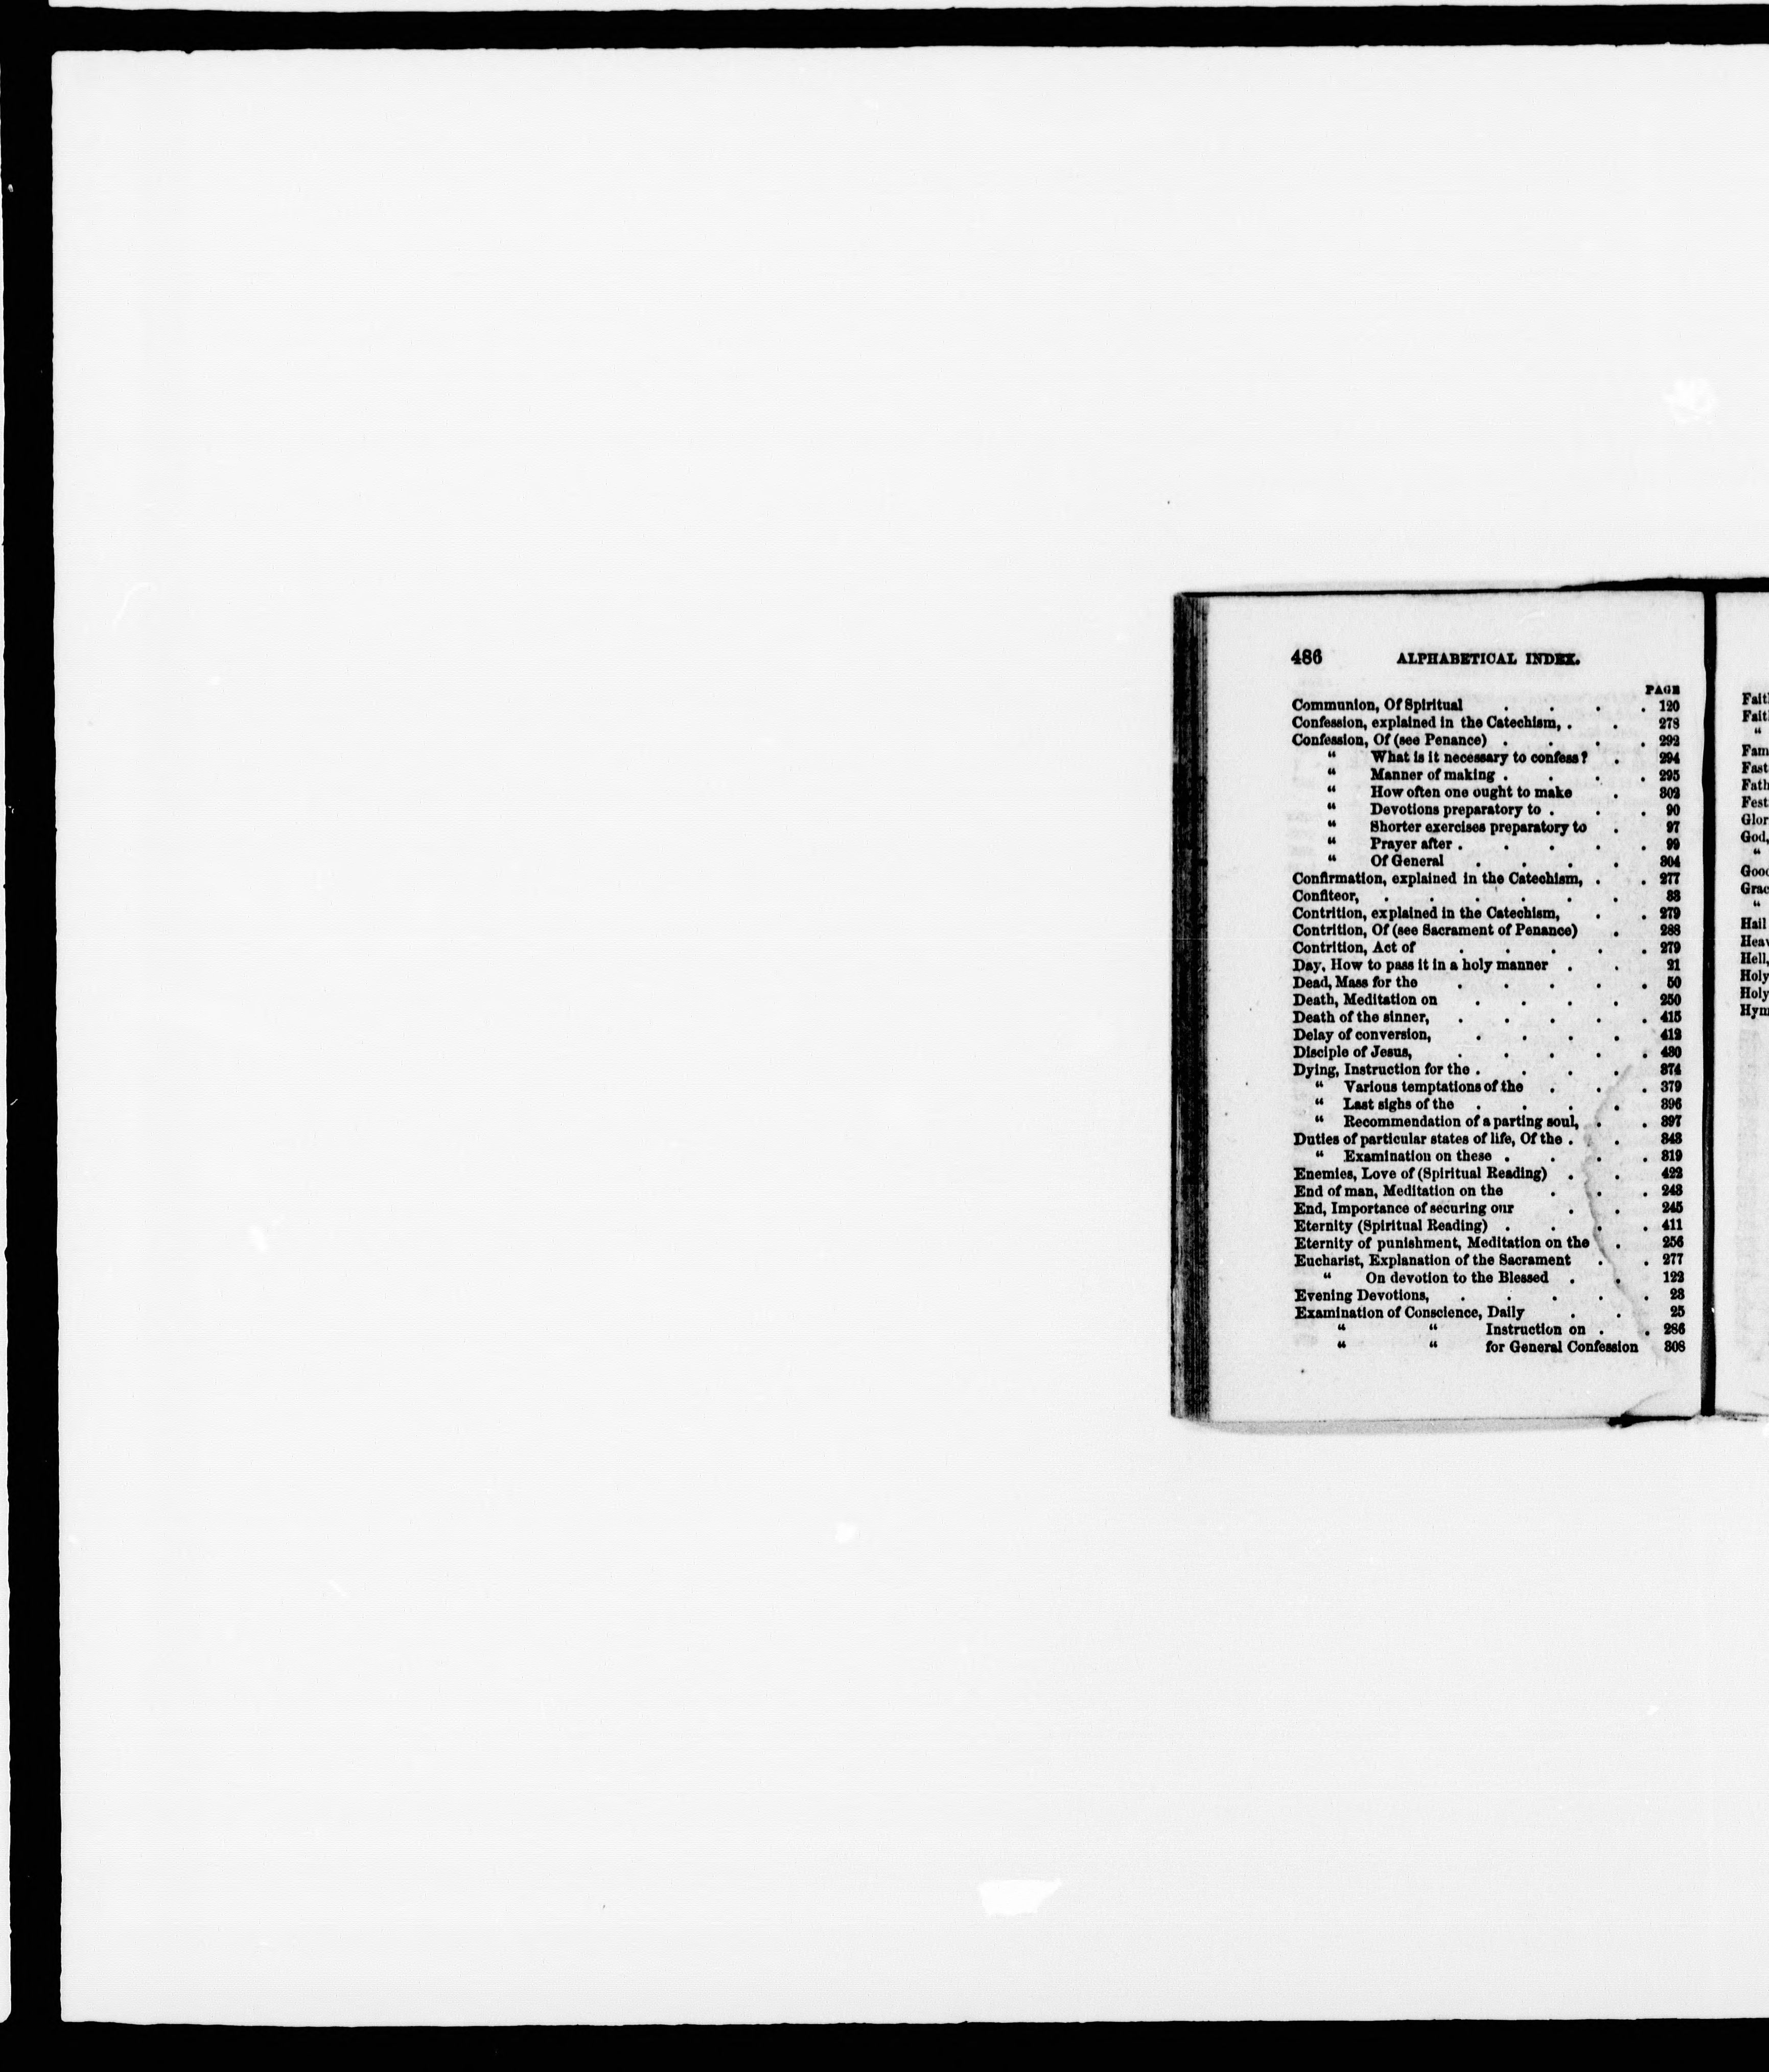 486 ALPHABETICAL INDEX.
PAGE
Communion, Of Spiritual . . . . 120
Confession, explained in the Catechism, . . 278
Confession, Of (see Penance) . . . . 292
“ What is it necessary to confess? . 294
“ Manner of making . . . . 295
“ How often one ought to make . 302
“ Devotions preparatory to . . . 90
“ Shorter exercises preparatory to . 97
“ Prayer after . . . . . 99
“ Of General . . . . 304
Confirmation, explained in the Catechism, . . 277
Confiteor, . . . . . . 38
Contrition, explained in the Catechism, . . 279
Contrition, Of (see Sacrament of Penance) . 288
Contrition, Act of . . . . . 279
Day, How to pass it in a holy manner . . 21
Dead, Mass for the . . . . . 50
Death, Meditation on . . . . 250
Death of the sinner, . . . . . 415
Delay of conversion, . . . . 412
Disciple of Jesus, . . . . . 430
Dying, Instruction for the . . . . 374
“ Various temptations of the . . . 379
“ Last sighs of the . . . . 396
“ Recommendation of a parting soul, . . 397
Duties of particular states of life, Of the . . . 343
“ Examination on these . . . . 319
Enemies, Love of (Spiritual Reading) . . 422
End of man, Meditation on the . . . 243
End, Importance of securing our . . 245
Eternity (Spiritual Reading) . . . . 411
Eternity of punishment, Meditation on the . 256
Eucharist, Explanation of the Sacrament . . 277
“ On devotion to the Blessed . . 122
Evening Devotions, . . . . . 23
Examination of Conscience, Daily . . 25
“ “ Instruction on . . 286
“ “ for General Confession 308